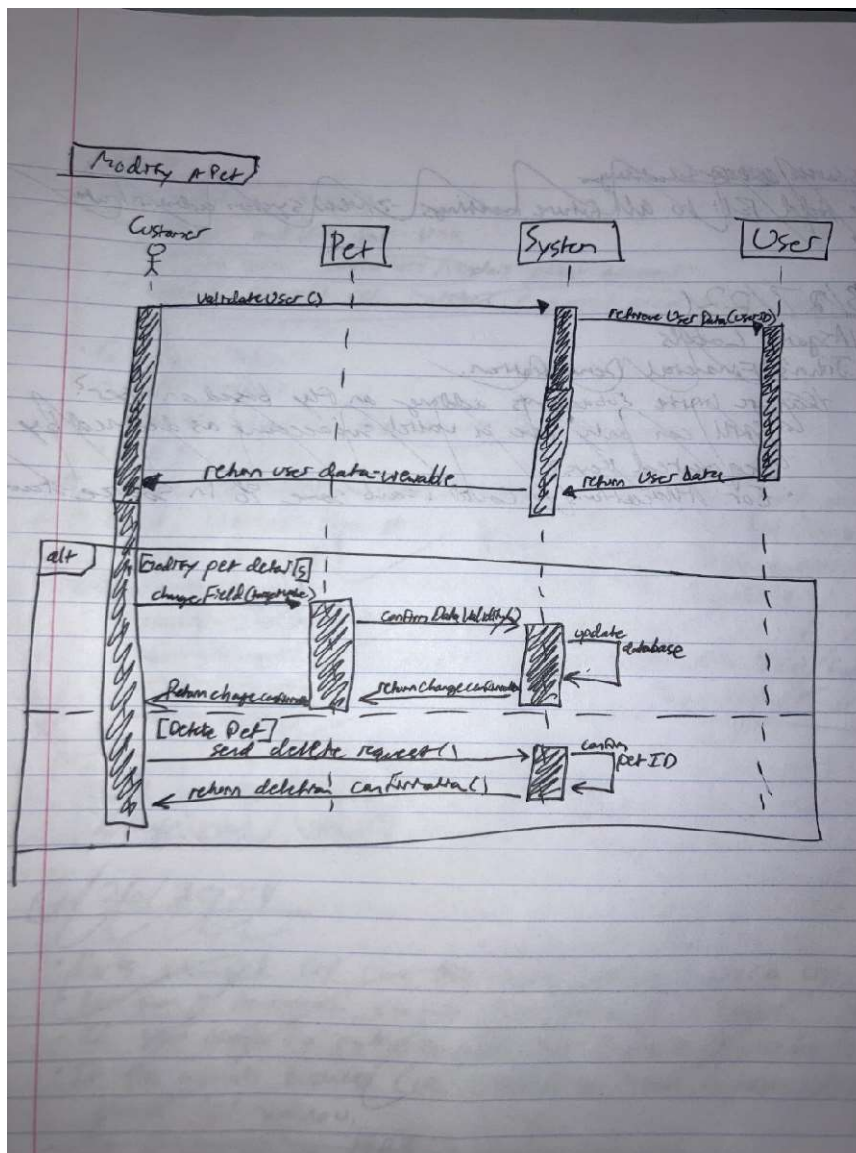 Modify A Pet
Customer
Pet
System
User
validateUser()
retrieve User Data(UserID)
return user data = viewable
return User data
alt
[Modify pet details]
changeField(
confirm Data Validity()
update
database
return change confirmation
Return change confirmation
[Delete Pet]
send delete request()
confirm
pet ID
return deletion confirmation()